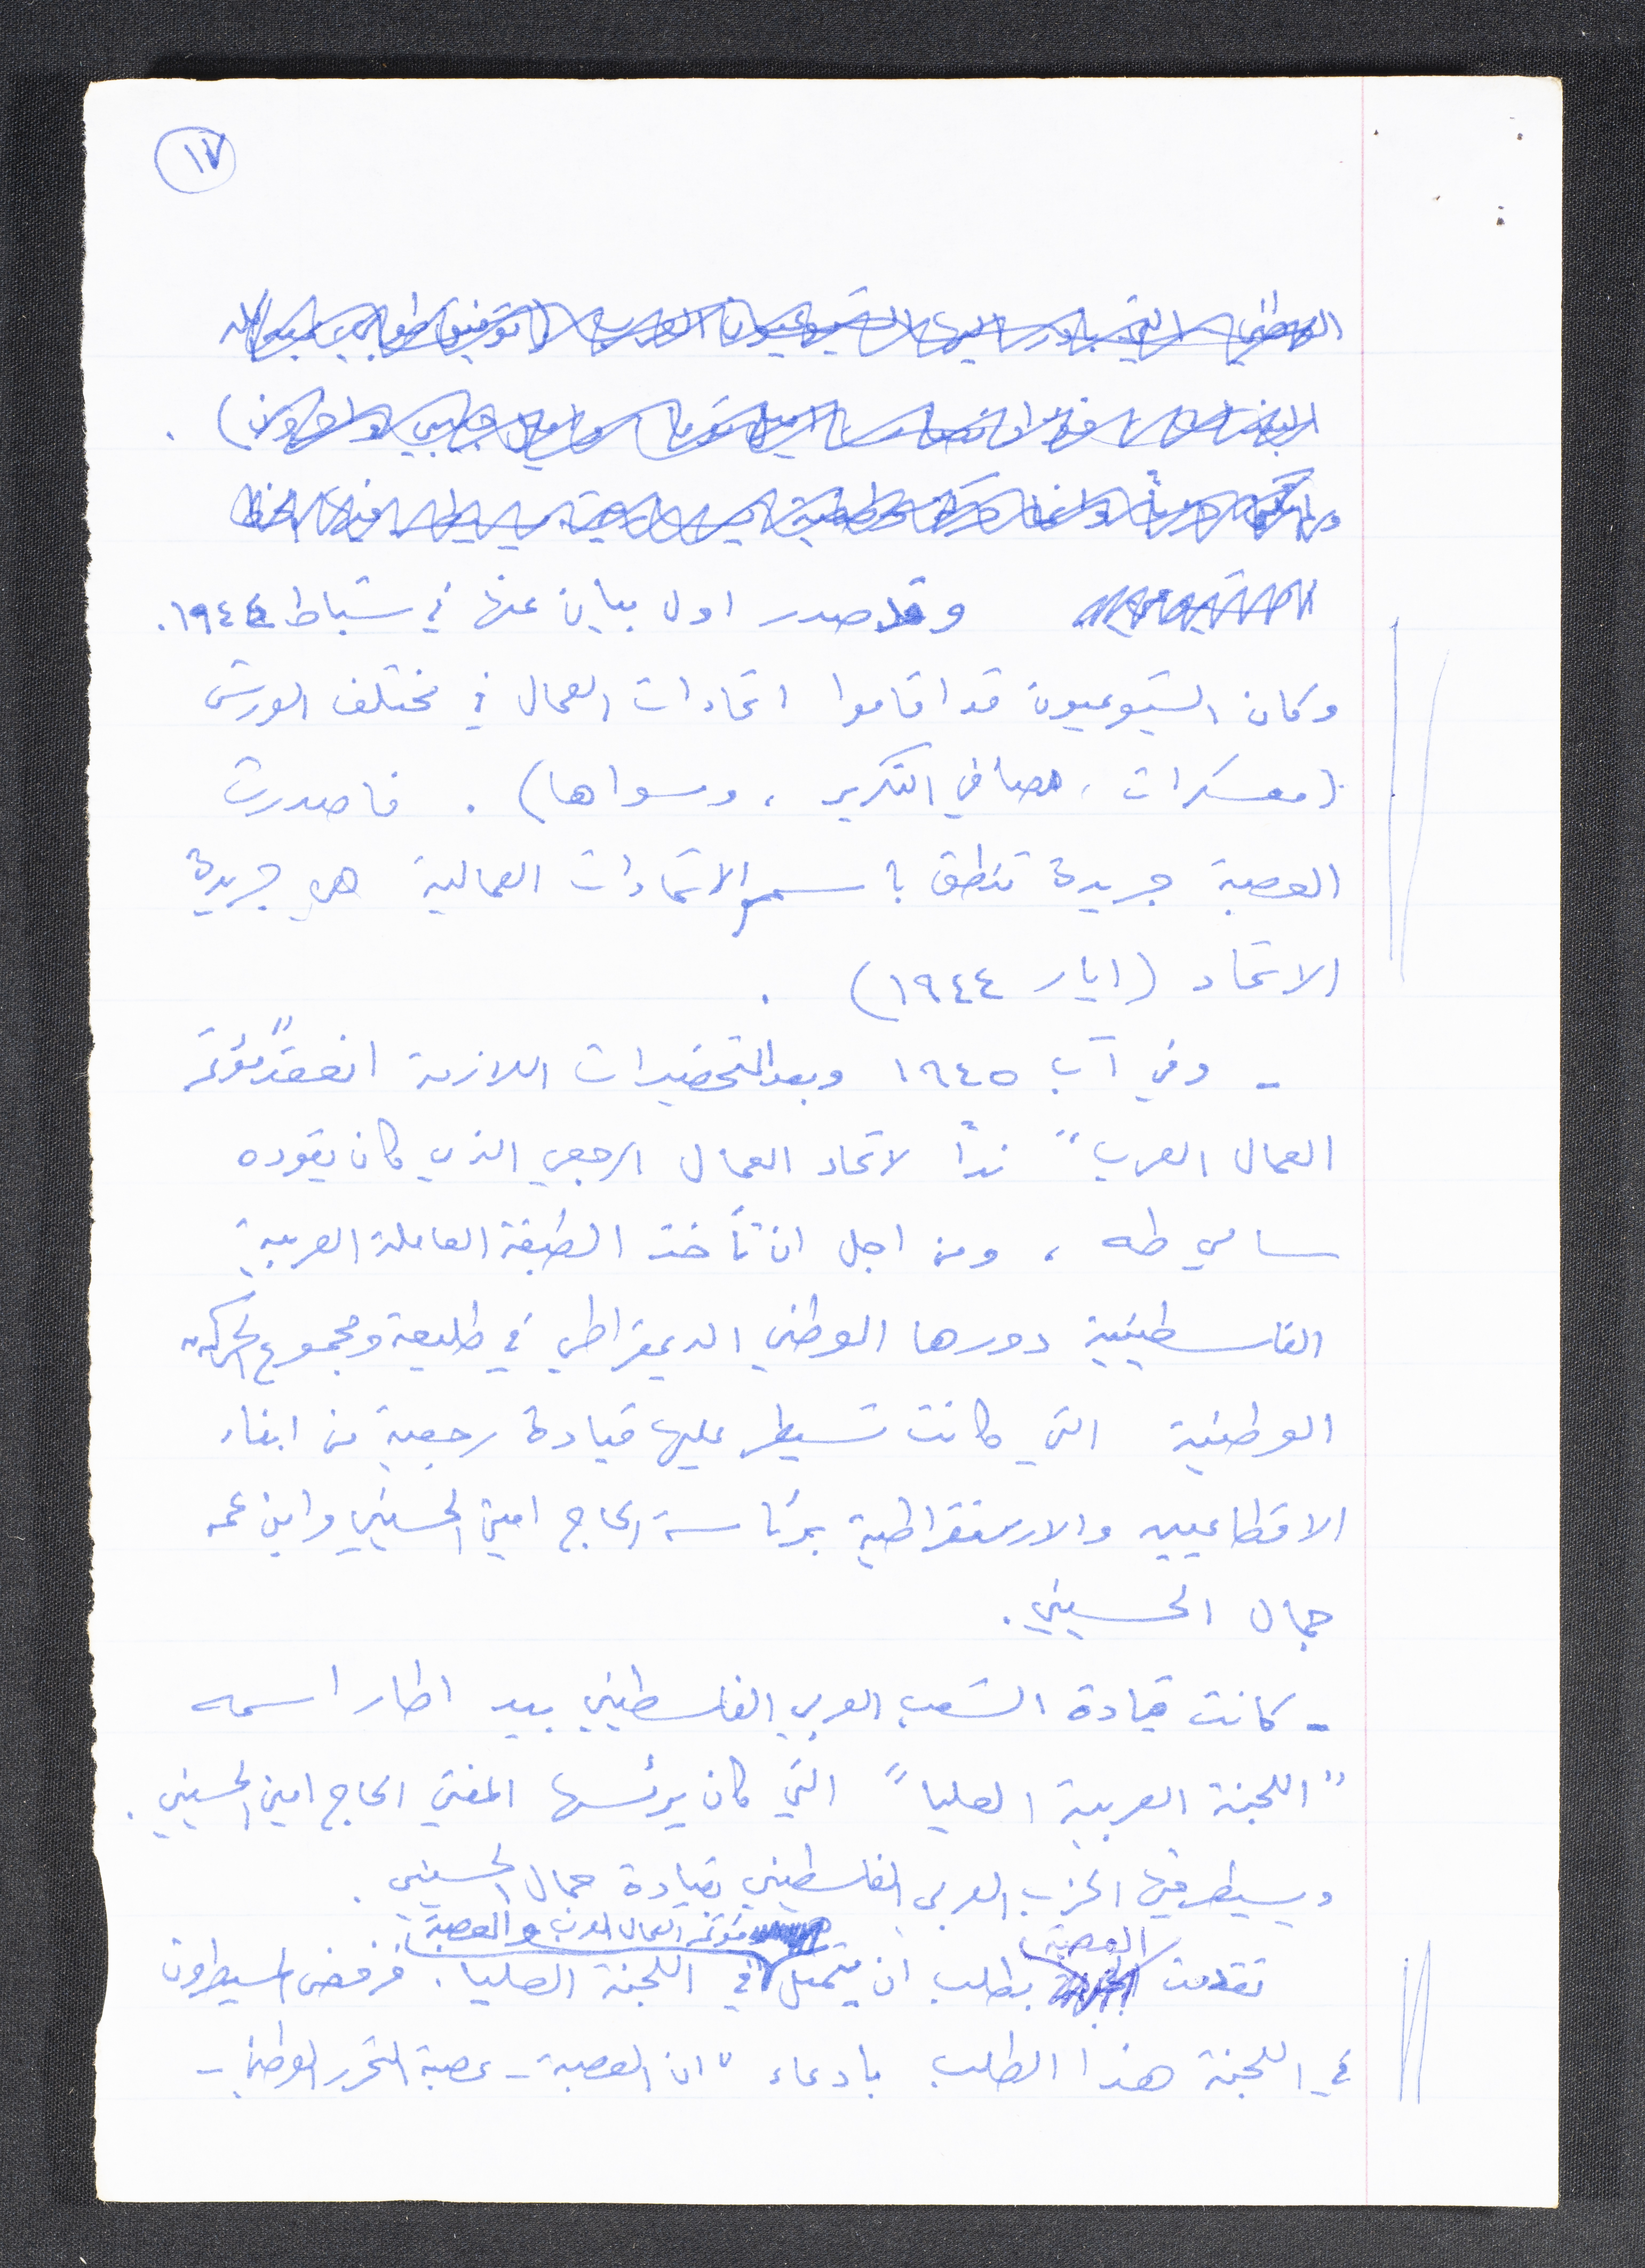 ١٧
وقد صدر اول بيان عنها في شباط ١٩٤٤.
وكان الشيوعيون قد اقاموا اتحادات العمال في مختلف الورش
(معسكرات، مصافي التكرير، وسواها). فاصدرت
العصبة جريدة تنطق باسم الاتحادات العمالية هي جريدة
الاتحاد (ايار ١٩٤٤).
- وفي آب ١٩٤٥ وبعد التحضيرات اللازمة انعقد "مؤتمر
العمال العرب" ندّاً لاتحاد العمال الرجعي الذي كان يقوده
سامي طه، ومن اجل ان تأخذ الطبقة العاملة العربية
الفلسطينية دورها الوطني الديمقراطي في طليعة ومجموع الحركة
الوطنية التي كانت تسيطر عليها قيادة رجعية من ابناء
الاقطاعيين والارستقراطية برئاسة الحاج امين الحسيني وابن عمه
جمال الحسيني.
- كانت قيادة الشعب العربي الفلسطيني بيد اطار اسمه
"اللجنة العربية العليا" التي كان يرئسها المفتي الحاج امين الحسيني.
ويسيطر فيها الحزب العربي الفلسطيني بقيادة جمال الحسيني.
تقدمت العصبة بطلب ان يتمثل مؤتمر العمال العرب والعصبة في اللجنة العليا. فرفض المسيطرون
في اللجنة هذا الطلب بادعاء "ان العصبة - عصبة التحرر الوطني -